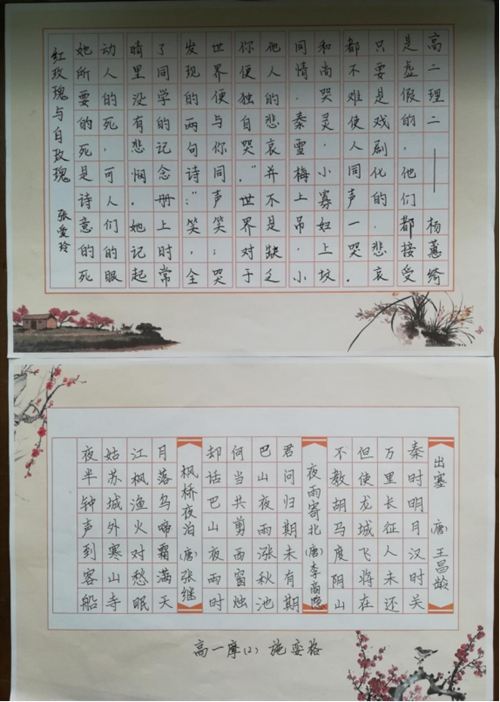 红玫瑰与白玫瑰 张爱玲
她所要的死是诗意的死
动人的死，可人们的眼
睛里没有悲悯。她记起
了同学的纪念册上时常
发现的两句诗：“笑，全
世界便与你同声笑；哭
你便独自哭。”世界对于
他人的悲哀并不是缺乏
同情，秦雪梅上吊，小
和尚哭灵，小寡妇上坟
都不难使人同声一哭。
只要是戏剧化的，悲哀
是虚假的，他们都接受
高二理二——杨蕙绮
出塞 (唐) 王昌龄
秦时明月汉时关
万里长征人未还
但使龙城飞将在
不教胡马度阴山
夜雨寄北 (唐) 李商隐
君问归期未有期
巴山夜雨涨秋池
何当共剪西窗烛
却话巴山夜雨时
枫桥夜泊 (唐) 张继
月落乌啼霜满天
江枫渔火对愁眠
姑苏城外寒山寺
夜半钟声到客船
高一摩(2) 施娈格